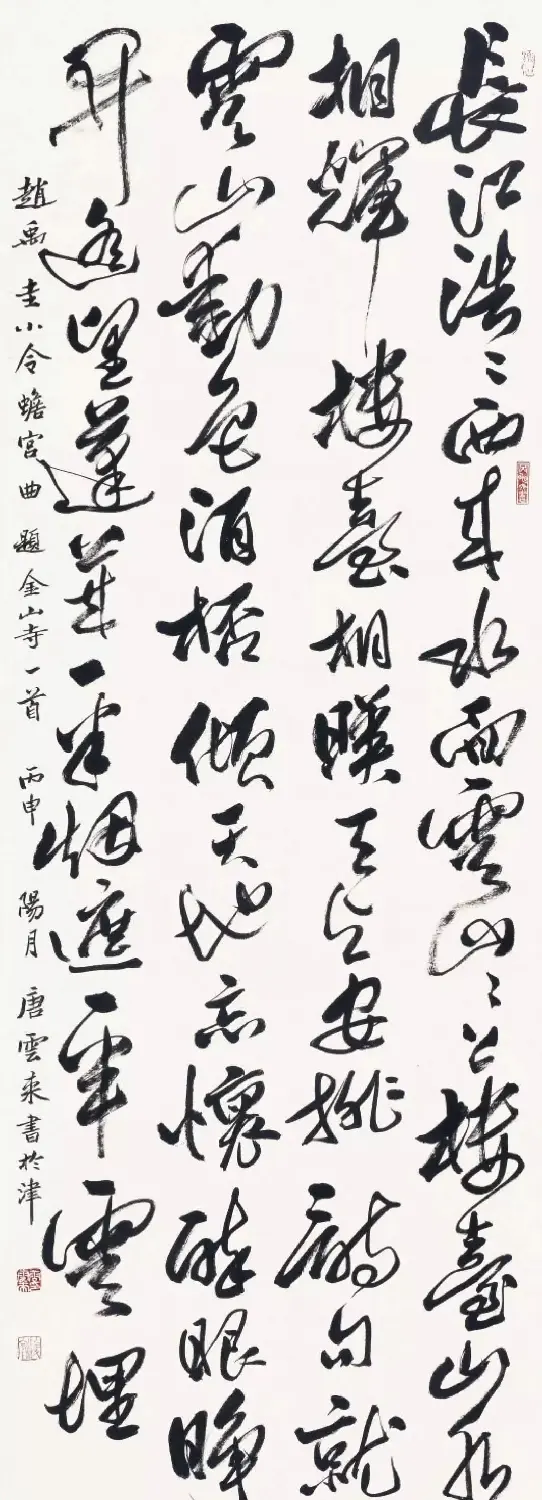 長江浩〻西来水面雲山〻上樓臺山水
相輝樓臺相映天与安排詩句就
雲山動色酒杯傾天地忘懷醉眼睁
開遙望蓬萊一半烟遮一半雲埋
趙禹圭小令蟾宮曲題金山寺一首 丙申陽月唐雲來書於津